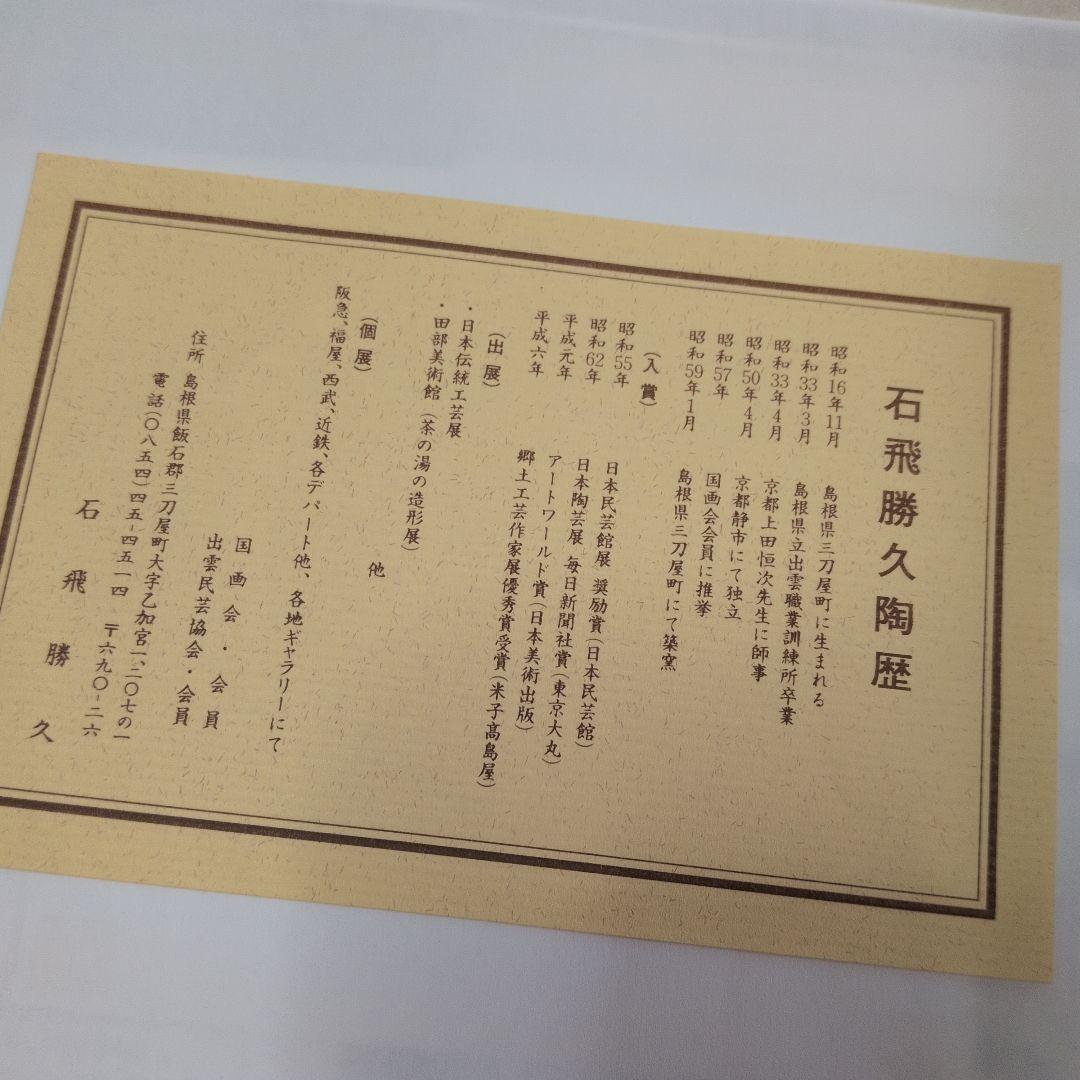 石飛勝久陶歴
昭和16年11月 島根県三刀屋町に生まれる
昭和33年3月 島根県立出雲職業訓練所卒業
昭和33年4月 京都上田恒次先生に師事
昭和50年4月 京都静市にて独立
昭和57年 国画会会員に推挙
昭和59年1月 島根県三刀屋町にて築窯
(入賞)
昭和55年 日本民芸館展 奨励賞(日本民芸館)
昭和62年 日本陶芸展 毎日新聞社賞(東京大丸)
平成元年 アートワールド賞(日本美術出版)
平成六年 郷土工芸作家展優秀賞受賞(米子髙島屋)
(出展)
・日本伝統工芸展
・田部美術館(茶の湯の造形展)
他
(個展)
阪急、福屋、西武、近鉄、各デパート他、各地ギャラリーにて
国画会・会員
出雲民芸協会・会員
住所 島根県飯石郡三刀屋町大字乙加宮一、二〇七の一
電話(〇八五四)四五-四五一四 〒六九〇-二六
石飛勝久